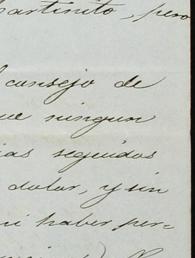 martinito, pero
consejo de
ue ningun
ias seguidos
dolar, y sin
ni haber per-